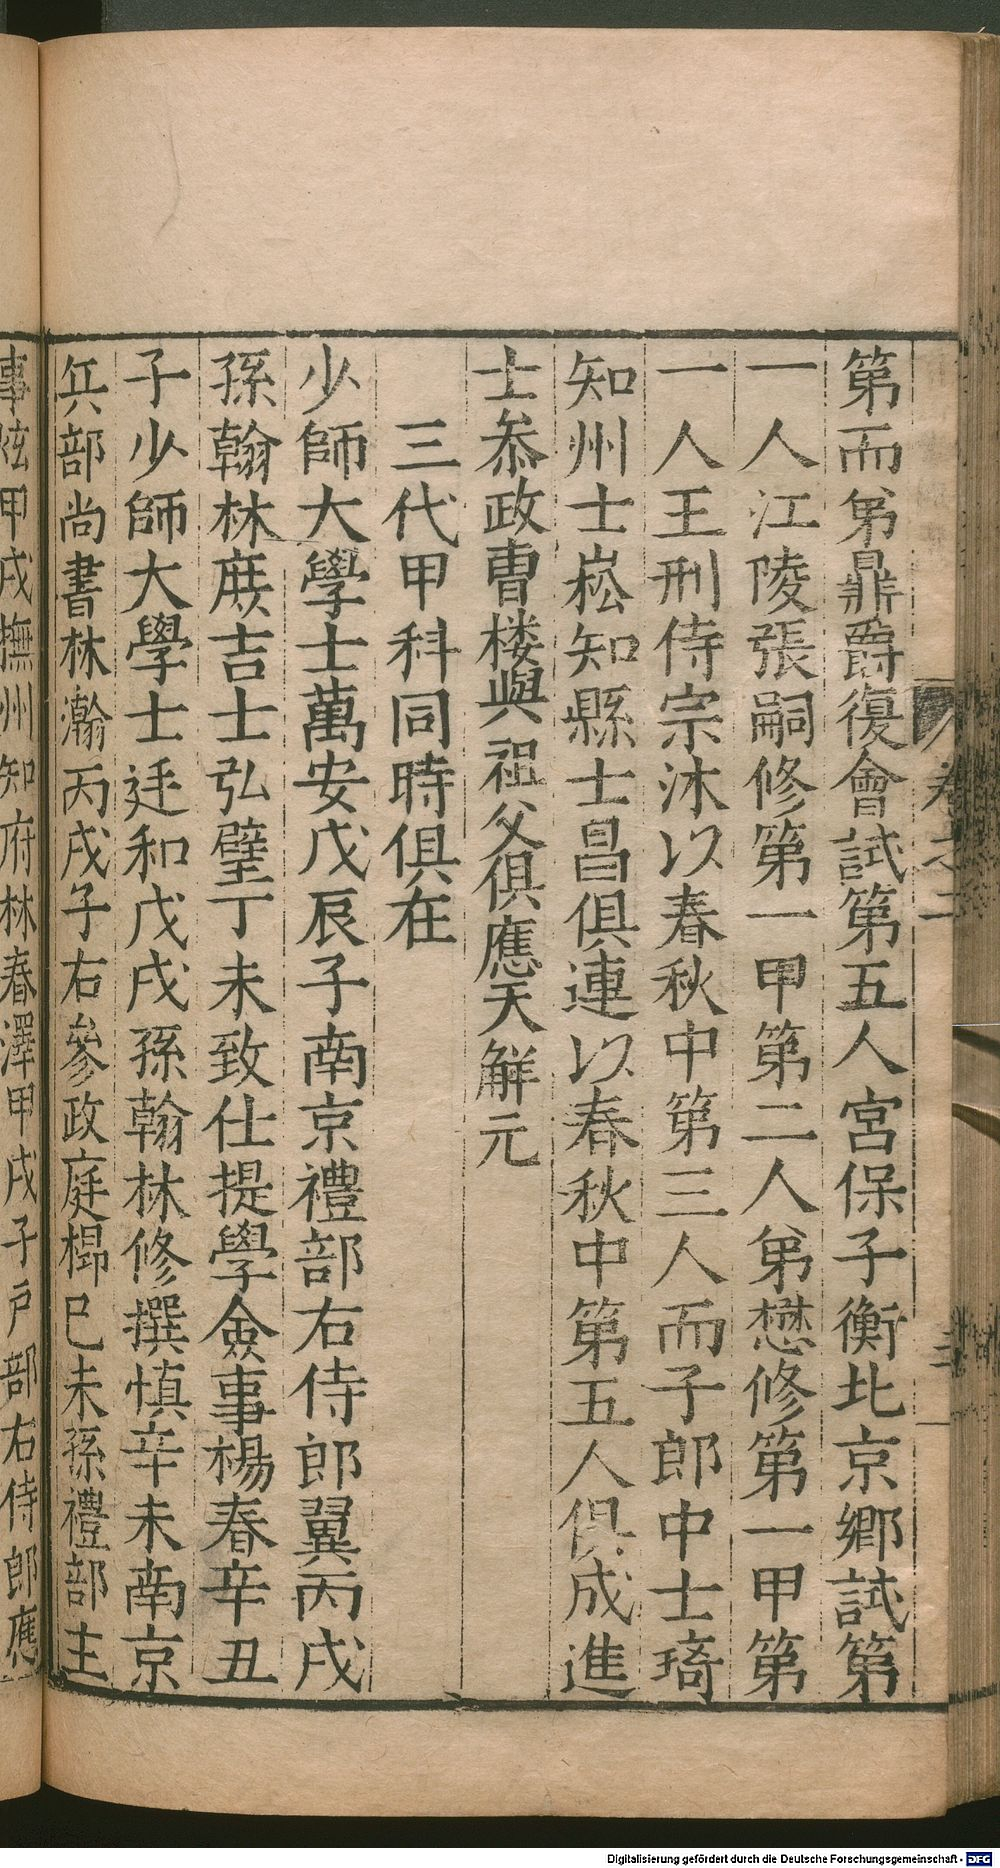 第而弟鼎爵復會試第五人宮保子衡北京鄉試第
一人江陵張嗣修第一甲第二人弟懋修第一甲第
一人王刑侍宗沐以春秋中第三人而子郎中士琦
知州士崧知縣士昌俱連以春秋中第五人俱成進
士叅政曹楼與祖父俱應天解元
三代甲科同時俱在
少師大學士萬安戊辰子南京禮部右侍郎翼丙戌
孫翰林庶吉士弘璧丁未致仕提學僉事楊春辛丑
子少師大學士廷和戊戌孫翰林修撰慎辛未南京
兵部尚書林瀚丙戌子右參政庭㭿巳未孫禮部主
事炫甲戌撫州知府林春澤甲戌子户部右侍郎應
卷之二
Digitalisierung gefördert durch die Deutsche Forschungsgemeinschaft - DFG